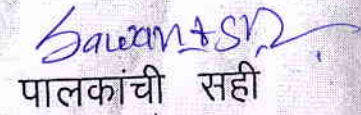 Sawant SR
पालकांची सही